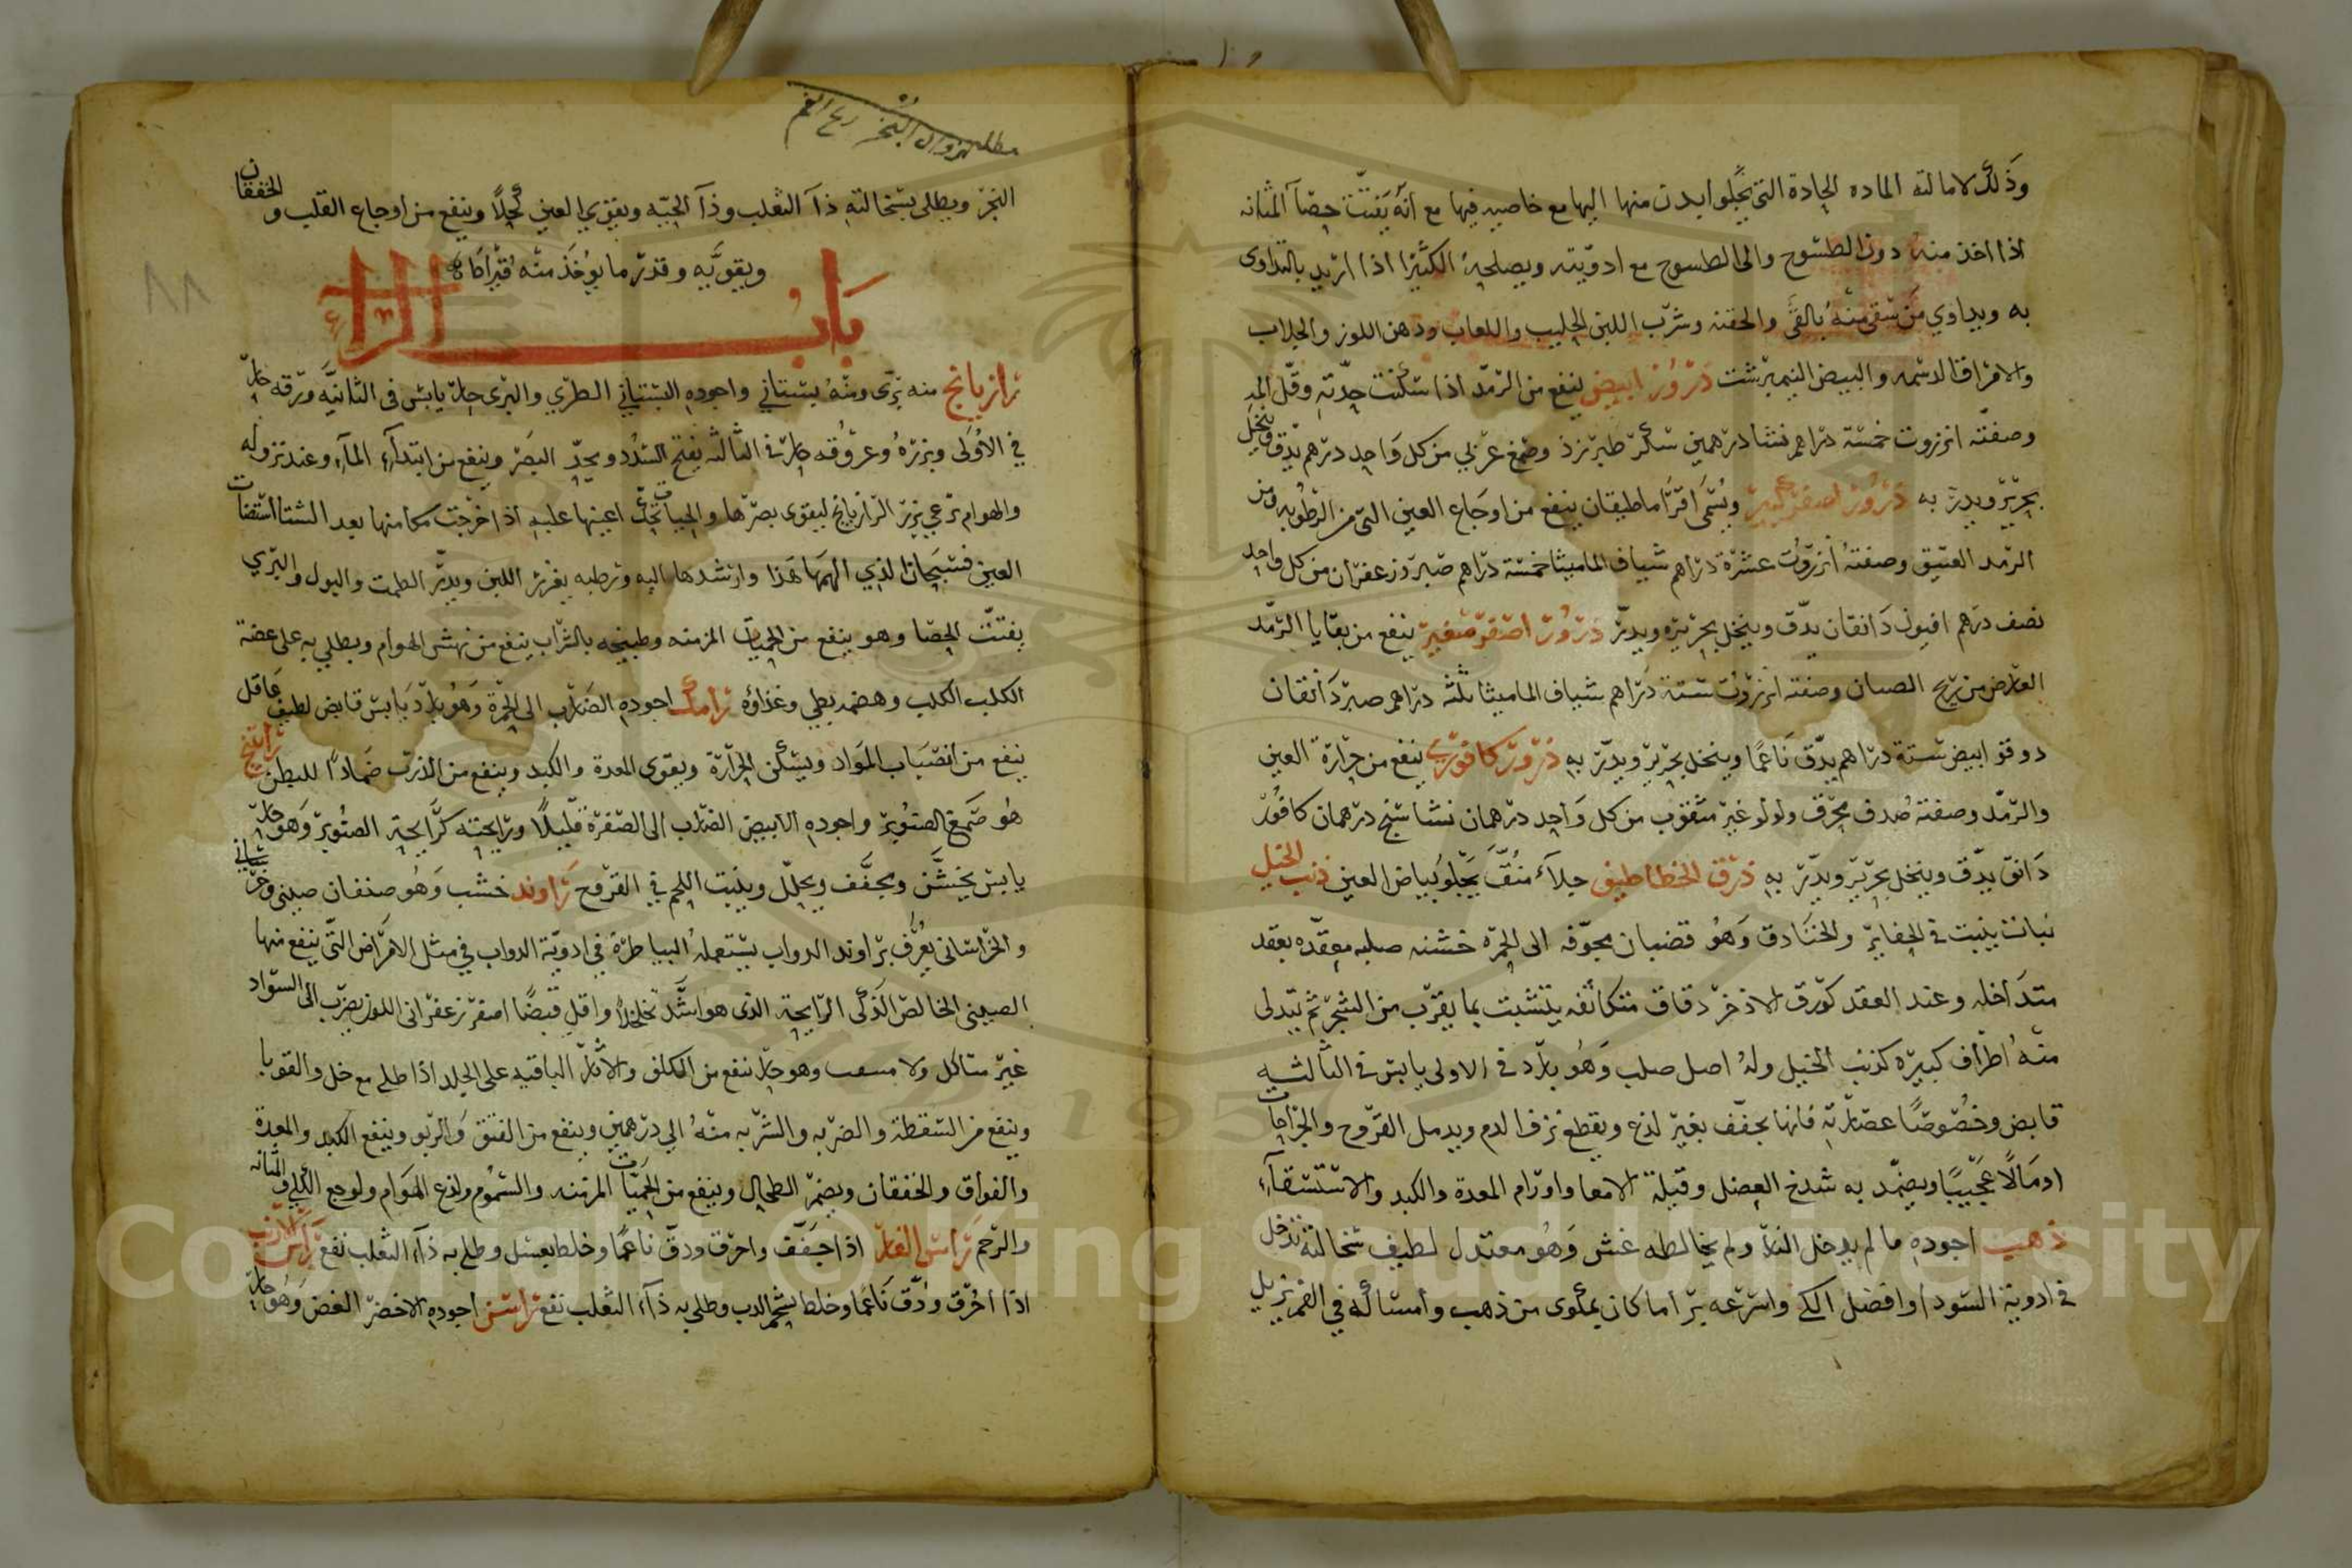 وذلك لامالته الماده الحادة التي يجلوا بدن منها اليها مع خاصيه فيها مع انه يفتت حصآ المثانه
اذا اخذ منه دون الطسوج والى الطسوج مع ادويته ويصلحه الكثيرا اذا اريد بالتداوى
به ويداوي من سقى منه بالقئ والحقنه وشرب اللبن الحليب واللعاب ودهن اللوز والجلاب
والامراق الدسمه والبيض النيمرشت ذرور ابيض ينفع من الرمد اذا سكنت حدته وقل المد
وصفته انزروت خمسة دراهم نشا درهمين سكر طبرزذ وصمغ عربي من كل واحد درهم يدق وينخل
بحرير ويدر به ذرور اصفر كبير ويسمى اقراماطيقان ينفع من اوجاع العين التى من الرطوبه ومن
الرمد العتيق وصفته انزروت عشرة دراهم شياف الماميثا خمسة دراهم صبر وزعفران من كل واحد
نصف درهم افيون دانقان يدق وينخل بحريره ويدر ذرور اصفر صغير ينفع من بقايا الرمد
العارض من ريح الصبان وصفته انزروت ستة دراهم شياف الماميثا ثلثه دراهم صبر دانقان
دوقو ابيض ستة دراهم يدق ناعما وينخل بحرير ويدر به ذرور كافورى ينفع من حرارة العين
والرمد وصفته صدف محرق ولولو غير مثقوب من كل واحد درهمان نشا ستج درهمان كافور
دانق يدق وينخل بحرير ويدر به ذرق الخطاطيف جلآء منق يجلو بياض العين ذنب الخيل
نبات ينبت في الحفاير والخنادق وهو قضبان مجوفه الى الحمره خشنه صلبه معقده بعقد
متداخله وعند العقد كورق الاذخر دقاق متكاثفه يتشبت بما يقرب من الشجر ثم يتدلى
منه اطراف كبيره كذنب الخيل وله اصل صلب وهو بارد في الاولى يابس في الثالثيه
قابض وخصوصا عصارته فانها تجفف بغير لذع ويقطع نزف الدم ويدمل القروح والجراحات
ادمالا عجيبا ويضمد به شدخ العضل وقيلة الامعا واورام المعدة والكبد والاستسقآء
ذهب اجوده ما لم يدخل النار ولم يخالطه غش وهو معتدل لطيف سحالته تدخل
في ادوية السودا وافضل الكي واسرعه برأ ما كان بمكوى من ذهب وامساكه في الفم يزيل
مطلب زوال البخر ريح الفم
البخر ويطلى بسحالته ذآ الثعلب وذآ الحيه ويقوي العين كحلا وينفع من اوجاع القلب والخفقان
ويقويه وقدر ما يوخذ منه قيراطان
باب الراء
رازيانج منه برى ومنه بستاني واجوده البستاني الطري والبرى حار يابس في الثانيه ورقه حار
في الاولى وبزره وعروقه حار في الثالثه يفتح السدد ويحد البصر وينفع من ابتدآء المآء وعند نزوله
والهوام ترعي بزر الرازيانج ليقوى بصرها والحيات تحك اعينها عليه اذا خرجت مكامنها بعد الشتا استضات
العين فسبحان الذي الهمها هذا وارشدها اليه ورطبه يغزر اللبن ويدر الطمث والبول والبري
يفتت الحصا وهو ينفع من الحميات المزمنه وطبيخه بالشراب ينفع من نهش الهوام ويطلي به على عضة
الكلب الكلب وهضمه بطي وغذاؤه رامك اجوده الضارب الى الحمرة وهو بارد يابس قابض لطيف عاقل
ينفع من انصباب المواد ويسكن الحرارة ويقوى المعدة والكبد وينفع من الذرب ضمادا للبطن راتنج
هو صمغ الصنوبر واجوده الابيض الضارب الى الصفرة قليلا ورايحته كرايحة الصنوبر وهو حار
يابس يخشن ويجفف ويحلل وينبت اللحم في القروح راوند خشب وهو صنفان صينى وخراساني
والخراسانى يعرف براوند الدواب يستعمله البياطرة في ادوية الدواب في مثل الامراض التى ينفع منها
الصينى الخالص الذكى الرايحة الذى هو اشد تخلخلا واقل قبضا اصفر زعفرانى اللون يضرب الى السواد
غير متاكل ولا وهو حار ينفع من الكلف والاثار الباقيه على الجلد اذا طلي مع خل والقوبا
وينفع من السقطة والضربه والشربه منه الي درهمين وينفع من الفتق والربو وينفع الكبد والمعدة
والفواق والخفقان ويضمر الطحال وينفع من الحميات المزمنه والسموم ولذع الهوام ولوجع الكلي والمثانه
والرحم راس الفار اذا جفف واحرق ودق ناعما وخلط بعسل وطلي به ذآء الثعلب نفع راس الارنب
اذا احرق ودق ناعما وخلط بشحم الدب وطلي به ذآء الثعلب نفع راسن اجوده الاخضر الغض وهو حار
٨٨
Copyright © King Saud University
1957